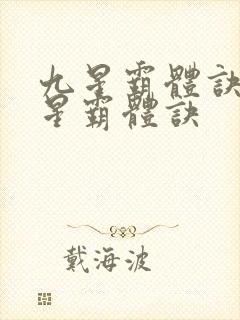 九星霸體訣
星霸體訣
戴海波